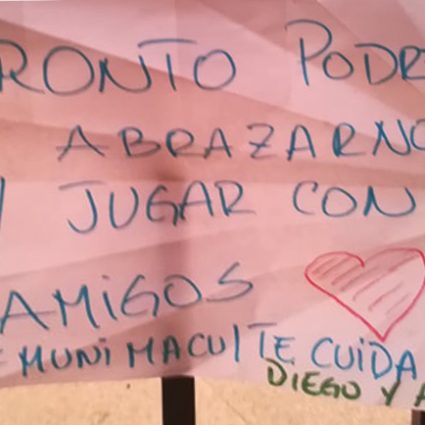 RONTO PODR
ABRAZARNO
Y JUGAR CON
AMIGOS
MUNI MACUL TE CUIDA
DIEGO Y A